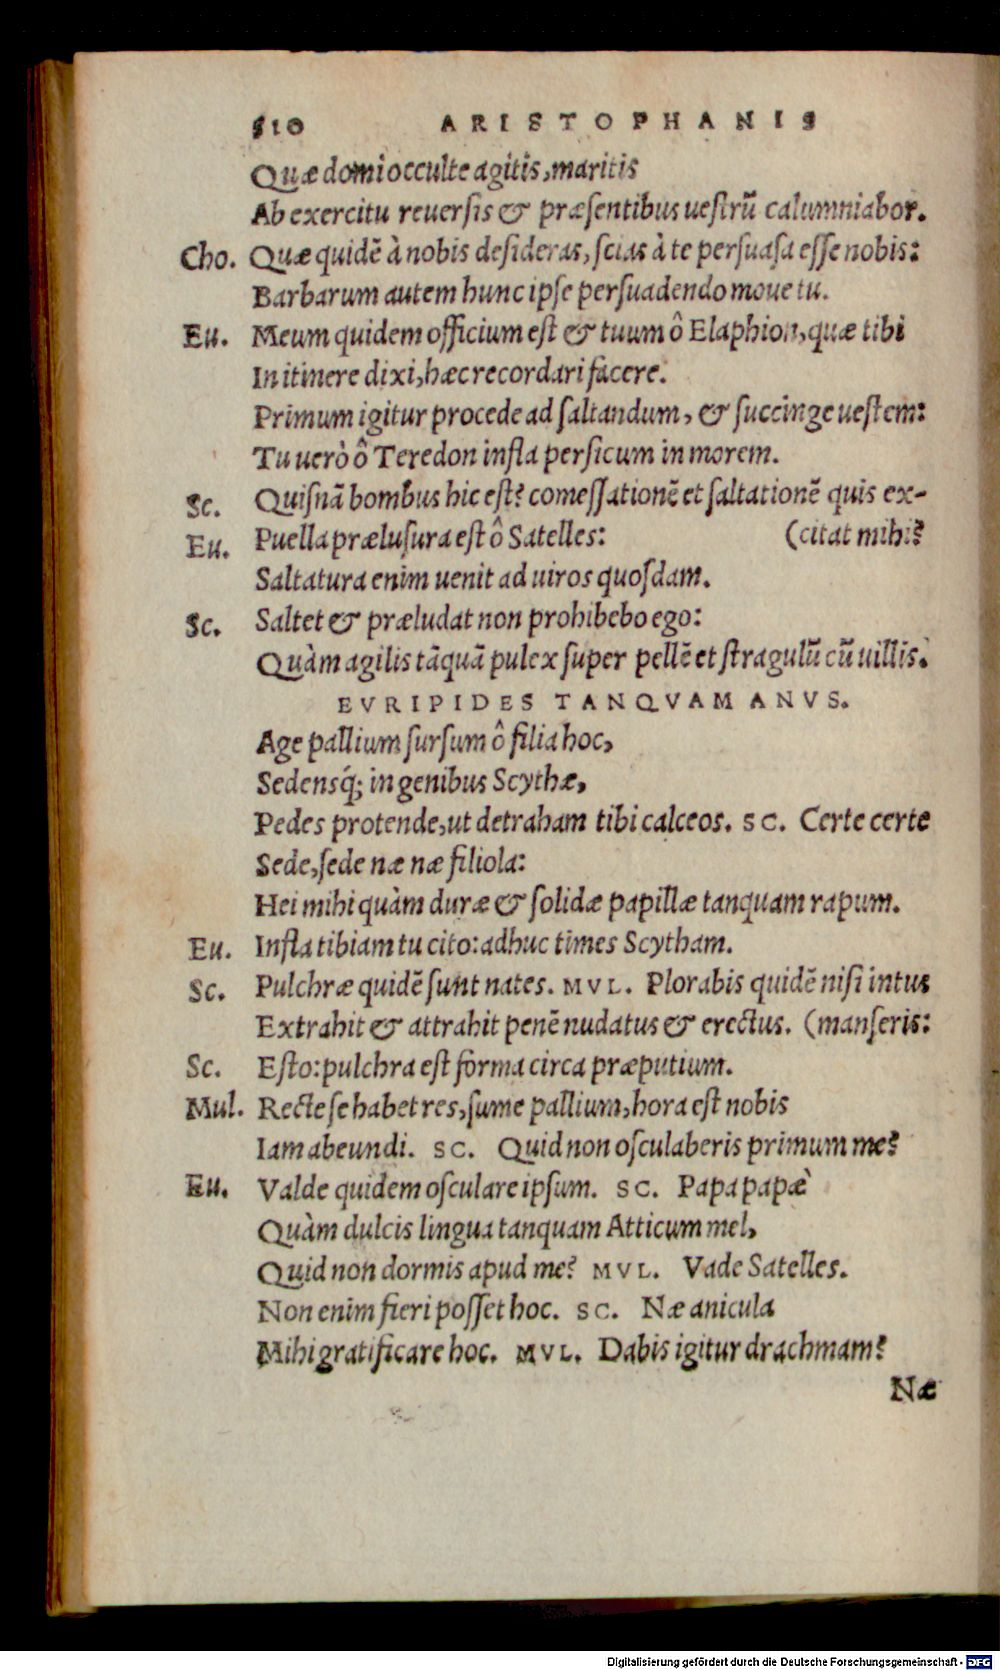 510 ARISTOPHANIS
Quæ domi occulte agitis, maritis
Ab exercitu reuersis & præsentibus uestrũ calumniabor.
Cho. Quæ quidẽ à nobis desideras, scias à te persuasa esse nobis:
Barbarum autem hunc ipse persuadendo moue tu.
Eu. Meum quidem officium est & tuum ô Elaphion, quæ tibi
In itinere dixi, hæc recordari facere.
Primum igitur procede ad saltandum, & succinge uestem:
Tu uerò ô Teredon infla persicum in morem.
Sc. Quisnã bombus hic est? comessationẽ et saltationẽ quis ex-
Eu. Puella prælusura est ô Satelles: (citat mihi?
Saltatura enim uenit ad uiros quosdam.
Sc. Saltet & præludat non prohibebo ego:
Quàm agilis tãquã pulex super pellẽ et stragulũ cũ uillis.
EVRIPIDES TANQVAM ANVS.
Age pallium sursum ô filia hoc,
Sedensq́; in genibus Scythæ,
Pedes protende, ut detraham tibi calceos. SC. Certe certe
Sede, sede næ næ filiola:
Hei mihi quàm duræ & solidæ papillæ tanquam rapum.
Eu. Infla tibiam tu cito: adhuc times Scytham.
Sc. Pulchræ quidẽ sunt nates. MVL. Plorabis quidẽ nisi intus
Extrahit & attrahit penẽ nudatus & erectus. (manseris:
Sc. Esto: pulchra est forma circa præputium.
Mul. Recte se habet res, sume pallium, hora est nobis
Iam abeundi. SC. Quid non osculaberis primum me?
Eu. Valde quidem osculare ipsum. SC. Papa papæ
Quàm dulcis lingua tanquam Atticum mel,
Quid non dormis apud me? MVL. Vade Satelles.
Non enim fieri posset hoc. SC. Næ anicula
Mihi gratificare hoc. MVL. Dabis igitur drachmam?
Næ
Digitalisierung gefördert durch die Deutsche Forschungsgemeinschaft - DFG